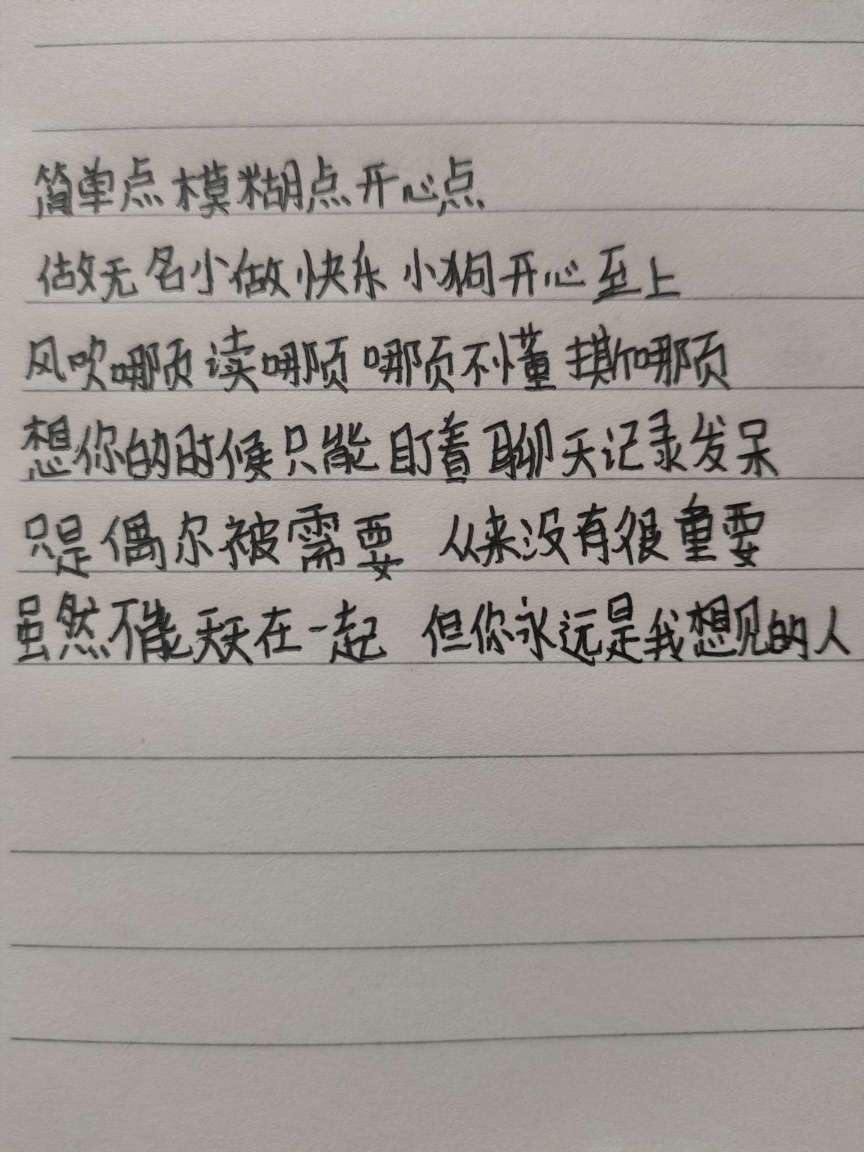 简单点模糊点开心点
做无名小做快乐小狗开心至上
风吹哪页读哪页 哪页不懂撕哪页
想你的时候只能盯着聊天记录发呆
只是偶尔被需要 从来没有很重要
虽然不能天天在一起 但你永远是我想见的人